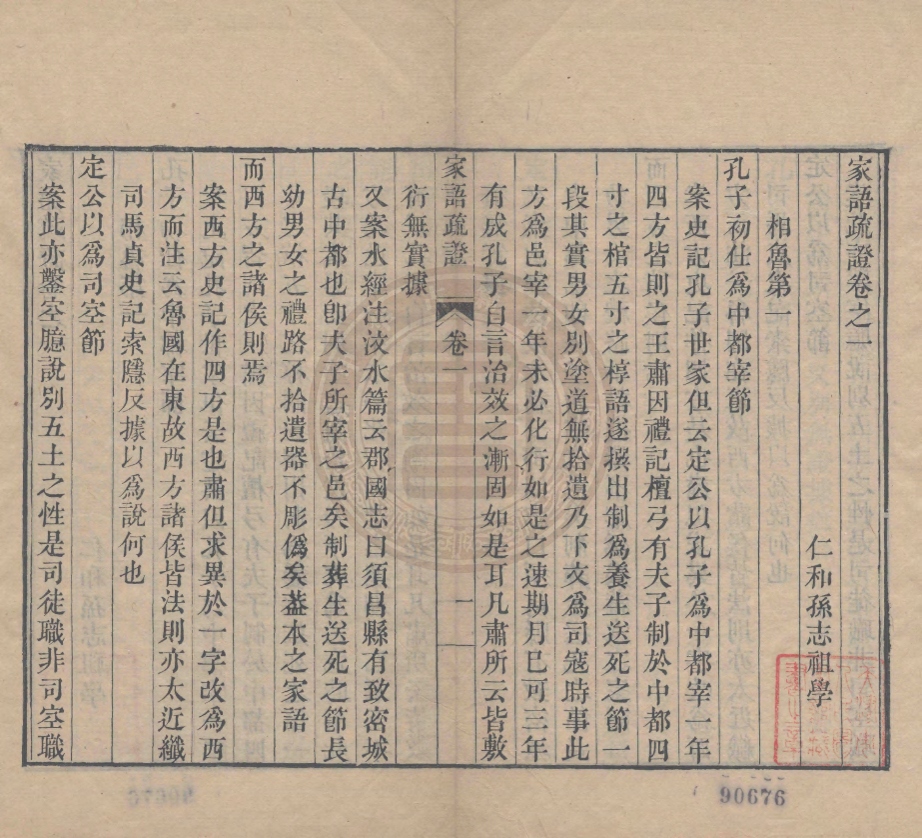 家語疏證卷之一
仁和孫志祖學
相魯第一
孔子初仕爲中都宰節
案史記孔子世家但云定公以孔子爲中都宰一年
四方皆則之王肅因禮記檀弓有夫子制於中都四
寸之棺五寸之椁語遂撰出制爲養生送死之節一
段其實男女別塗道無拾遺乃下文爲司寇時事此
方爲邑宰一年未必化行如是之速期月巳可三年
有成孔子自言治效之漸固如是耳凡肅所云皆敷
家語疏證
卷一
一
衍無實據
又案水經注汶水篇云郡國志曰須昌縣有致密城
古中都也卽夫子所宰之邑矣制葬生送死之節長
幼男女之禮路不拾遺器不彫僞矣葢本之家語
而西方之諸侯則焉
案西方史記作四方是也肅但求異於一字改爲西
方而注云魯國在東故西方諸侯皆法則亦太近纖
司馬貞史記索隱反據以爲說何也
定公以爲司空節
案此亦鑿空臆說別五土之性是司徒職非司空職
90676